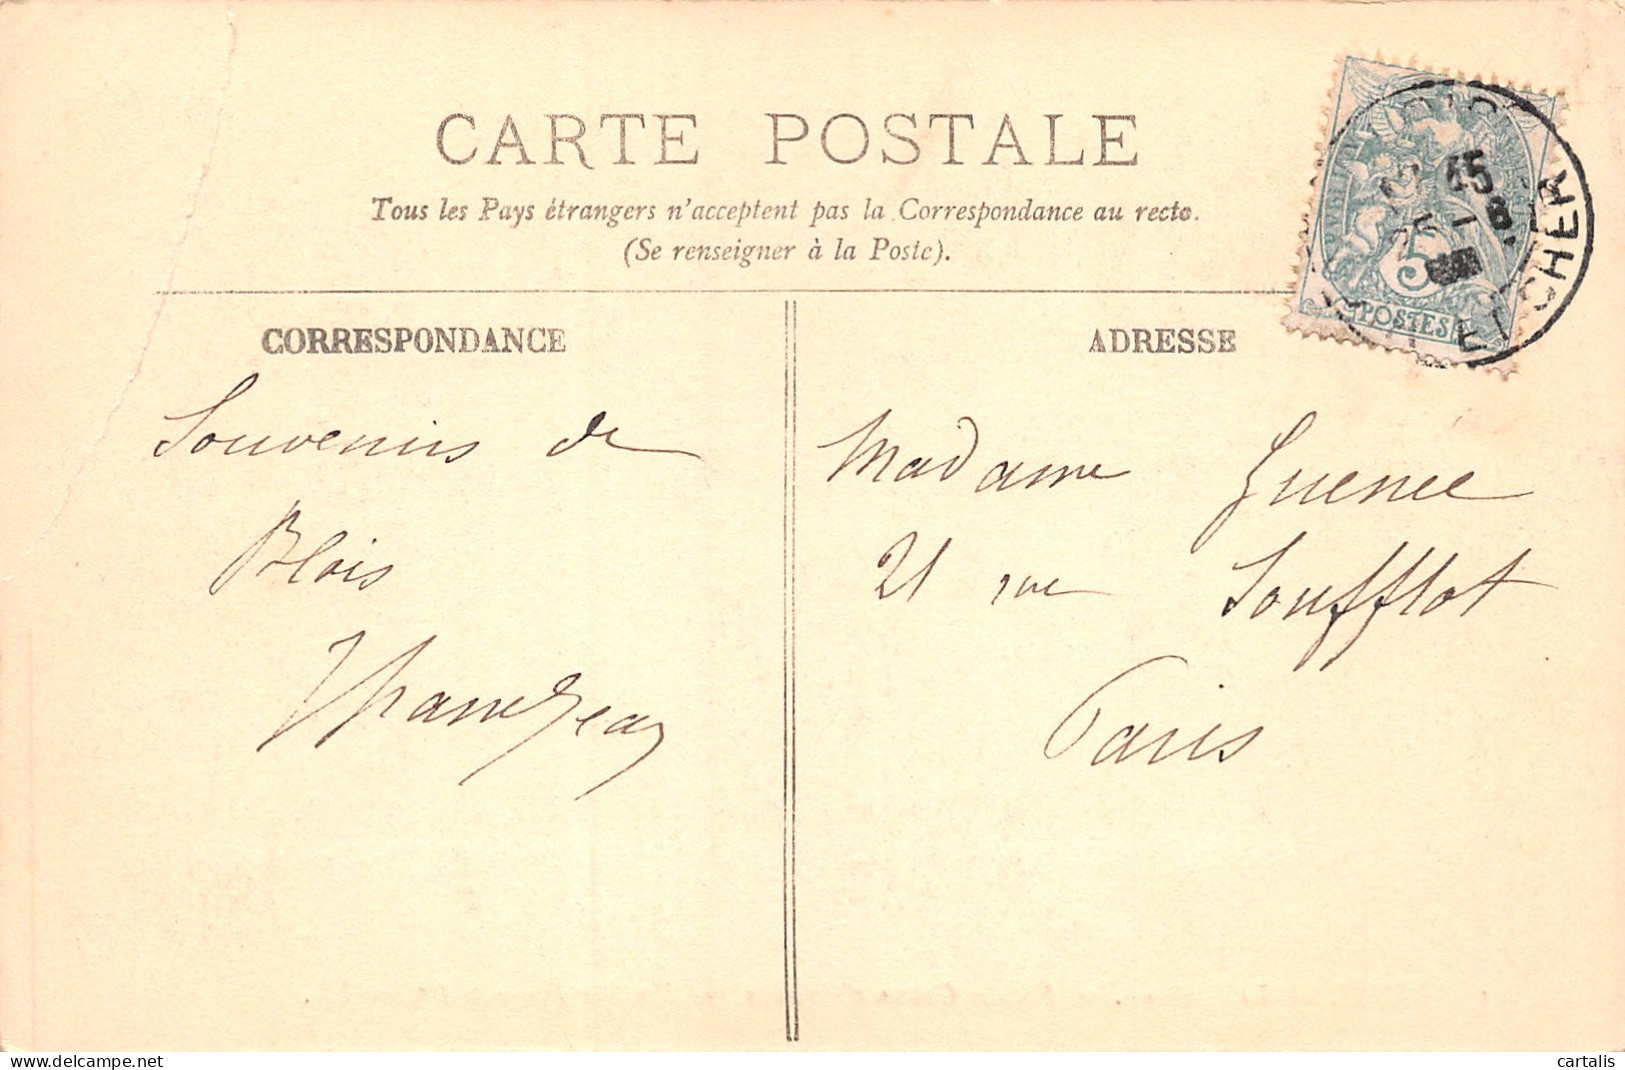 CARTE POSTALE
Tous les Pays étrangers n'acceptent pas la Correspondance au recto.
(Se renseigner à la Poste).
CORRESPONDANCE
ADRESSE
5
POSTES
ET CHER
15
Souvenirs de
Blois
Madame Guenee
21 rue Soufflot
Paris
delcampe.net
cartalis